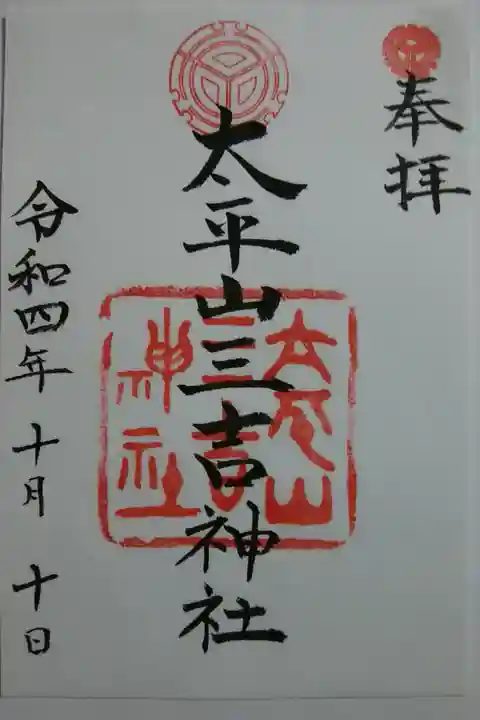 奉拝
太平山三吉神社
太平山
三吉
神社
令和四年 十月 十日